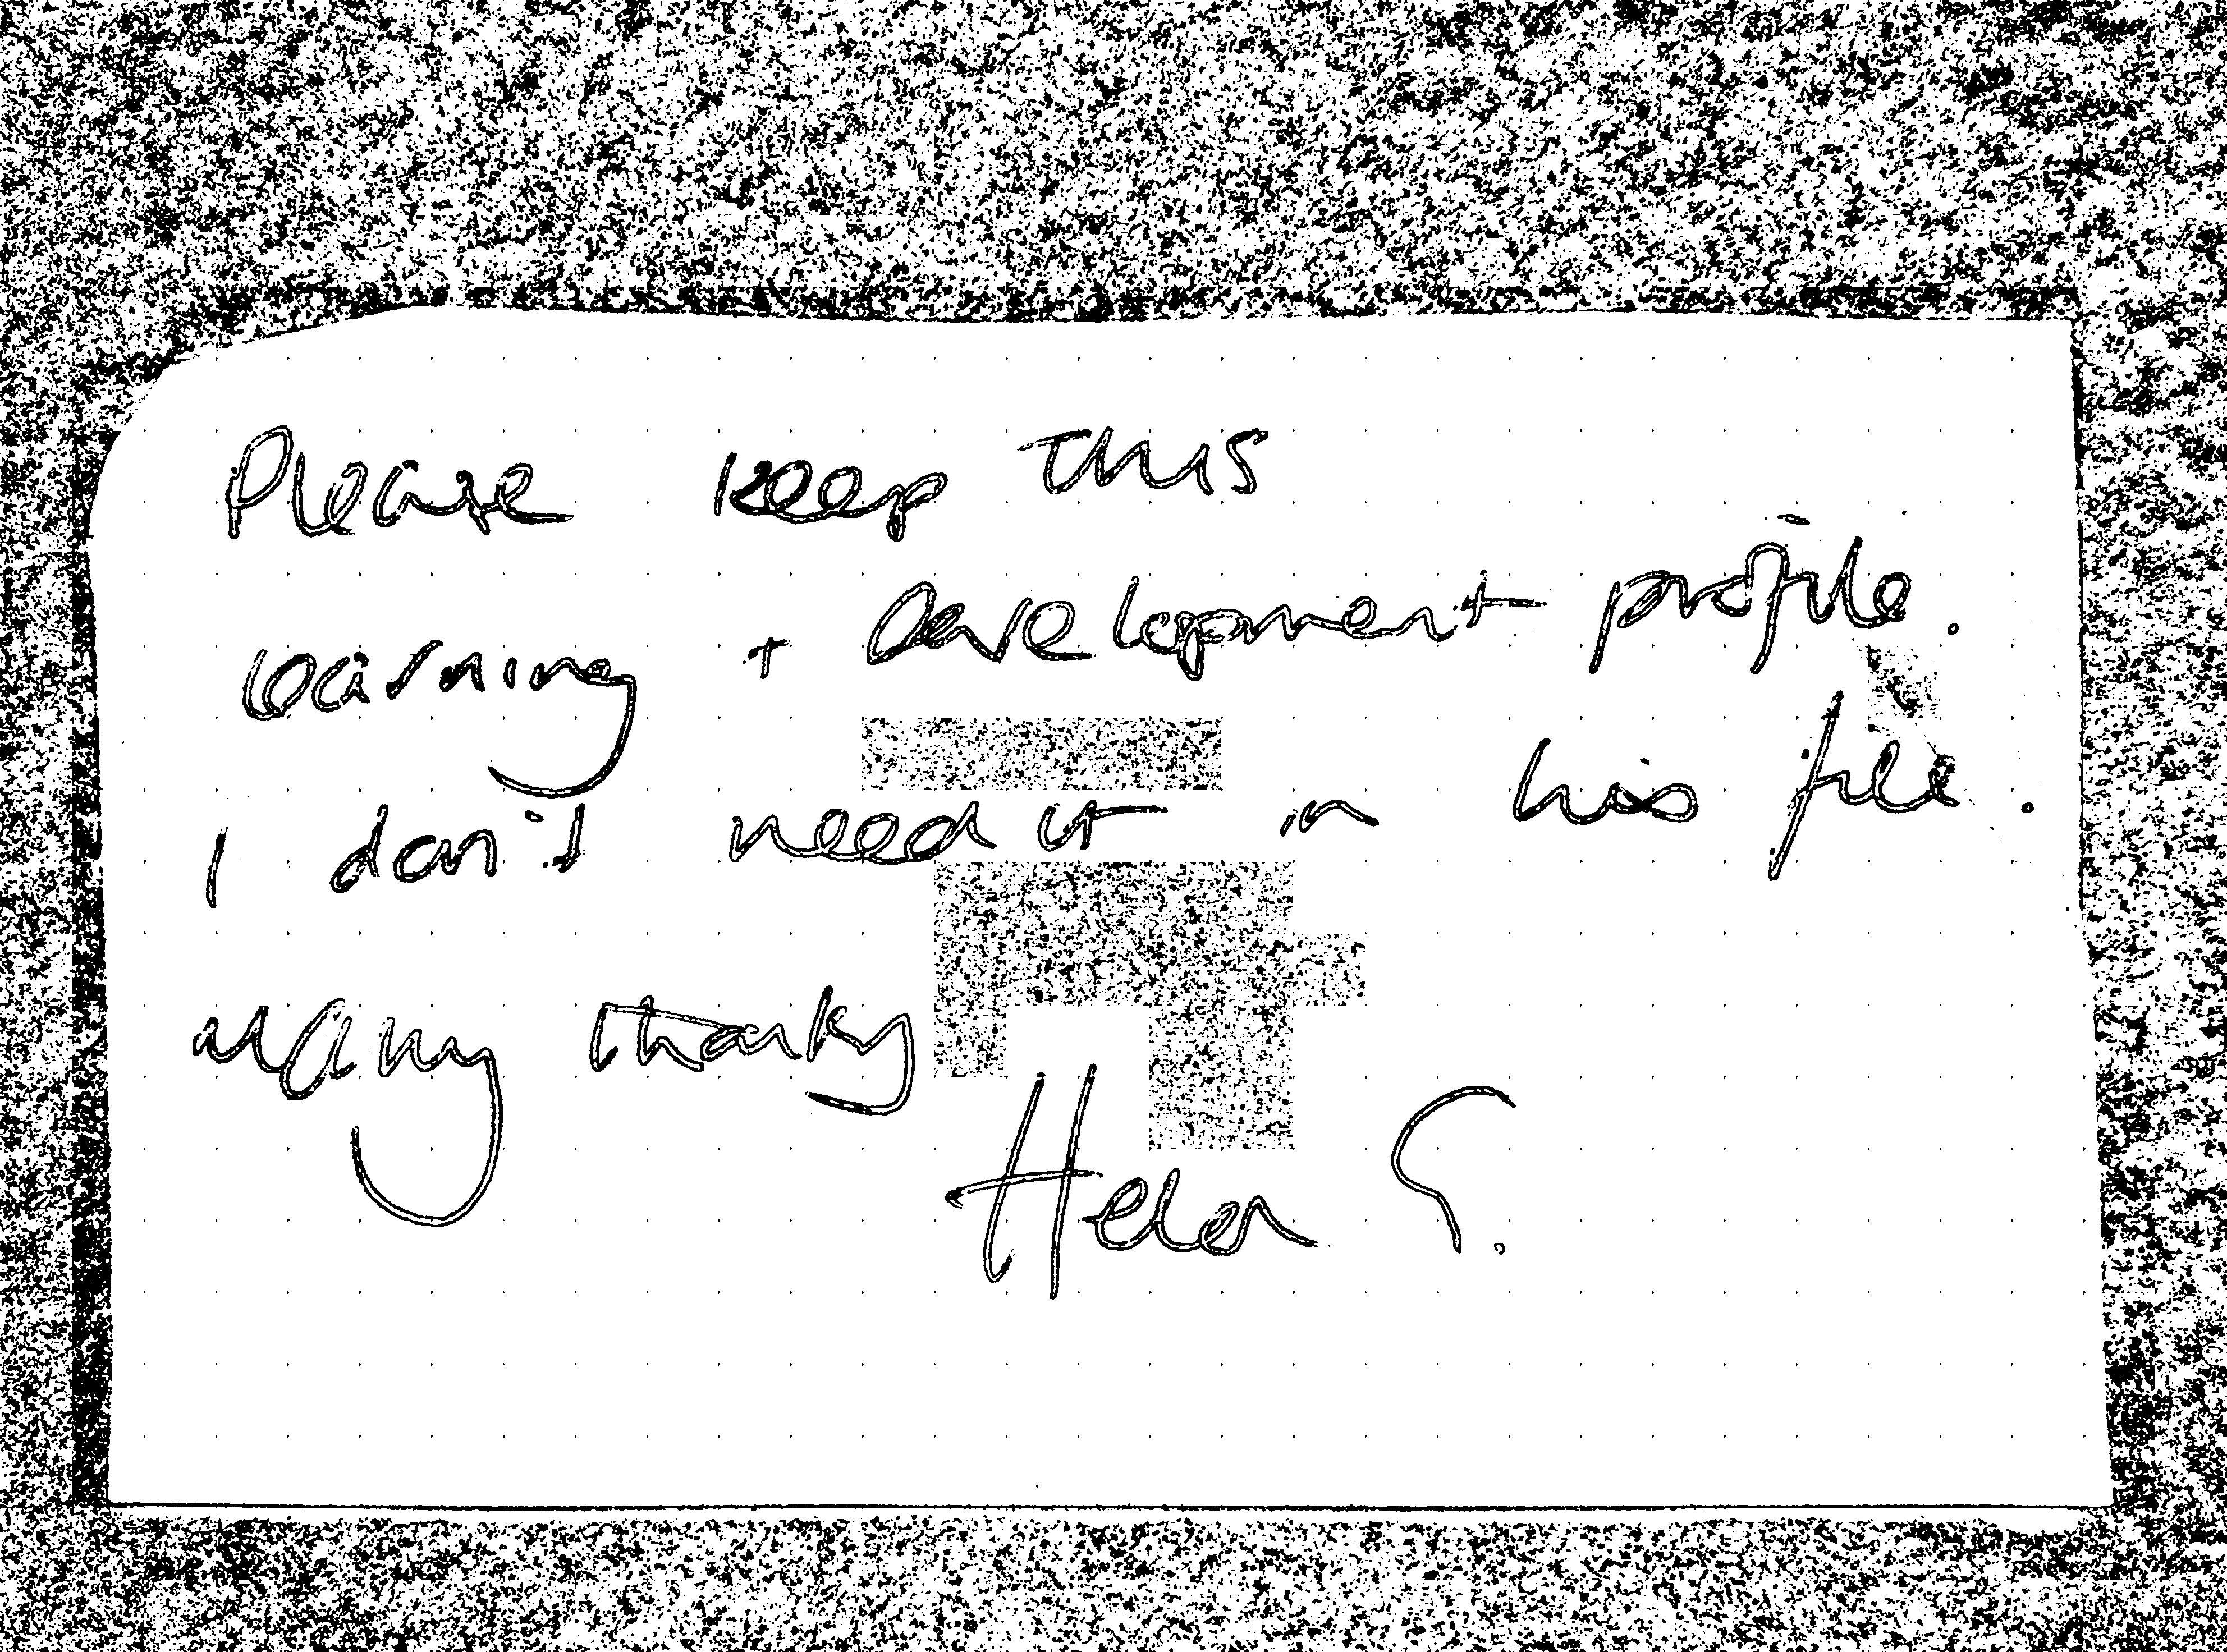 Please keep this
learning + Development profile.
I don't need it in his file.
Many thanks
Helen S.